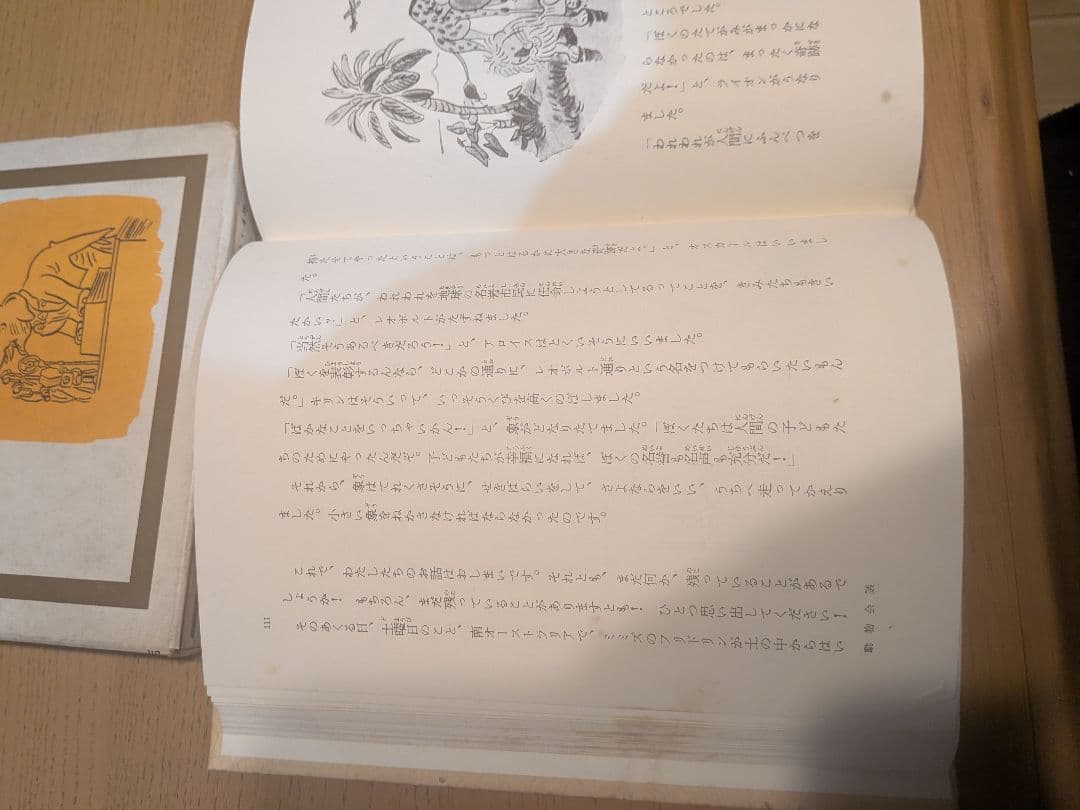 ところでした。
「ぼくのたてがみがまっかにな
らなかったのは、まったく奇蹟
だよ!」と、ライオンがうなり
ました。
「われわれが人間にふんべつを
持たせてやったということは、もっとはるかに大きな奇蹟だ。」と、オスカールはいいまし
た。
「人間たちが、われわれを地球の名誉市民に任命しようとしてるってことを、きみたちもきい
たかい?」と、レオポルトがたずねました。
「当然そうあるべきだろう!」と、アロイスはとくいそうにいいました。
「ぼくを表彰するんなら、どこかの通りに、レオポルト通りという名をつけてもらいたいもん
だ。」キリンはそういって、いっそうくびを高くのばしました。
「ばかなことをいっちゃいかん!」と、象がどなりたてました。「ぼくたちは人間の子どもた
ちのためにやったんだぞ。子どもたちが幸福になれば、ぼくの名誉も名声も充分だ!」
それから、象はてれくさそうに、せきばらいをして、さよならをいい、うちへ走ってかえり
ました。小さい象をねかさなければならなかったのです。
これで、わたしたちのお話はおしまいです。それとも、まだ何か、残っていることがあるで
しょうか! もちろん、まだ残っていることがありますとも! ひとつ思い出してください!
そのあくる日、土曜日のこと、南オーストラリアで、ミミズのフリドリンが土の中からはい
111
動物会議